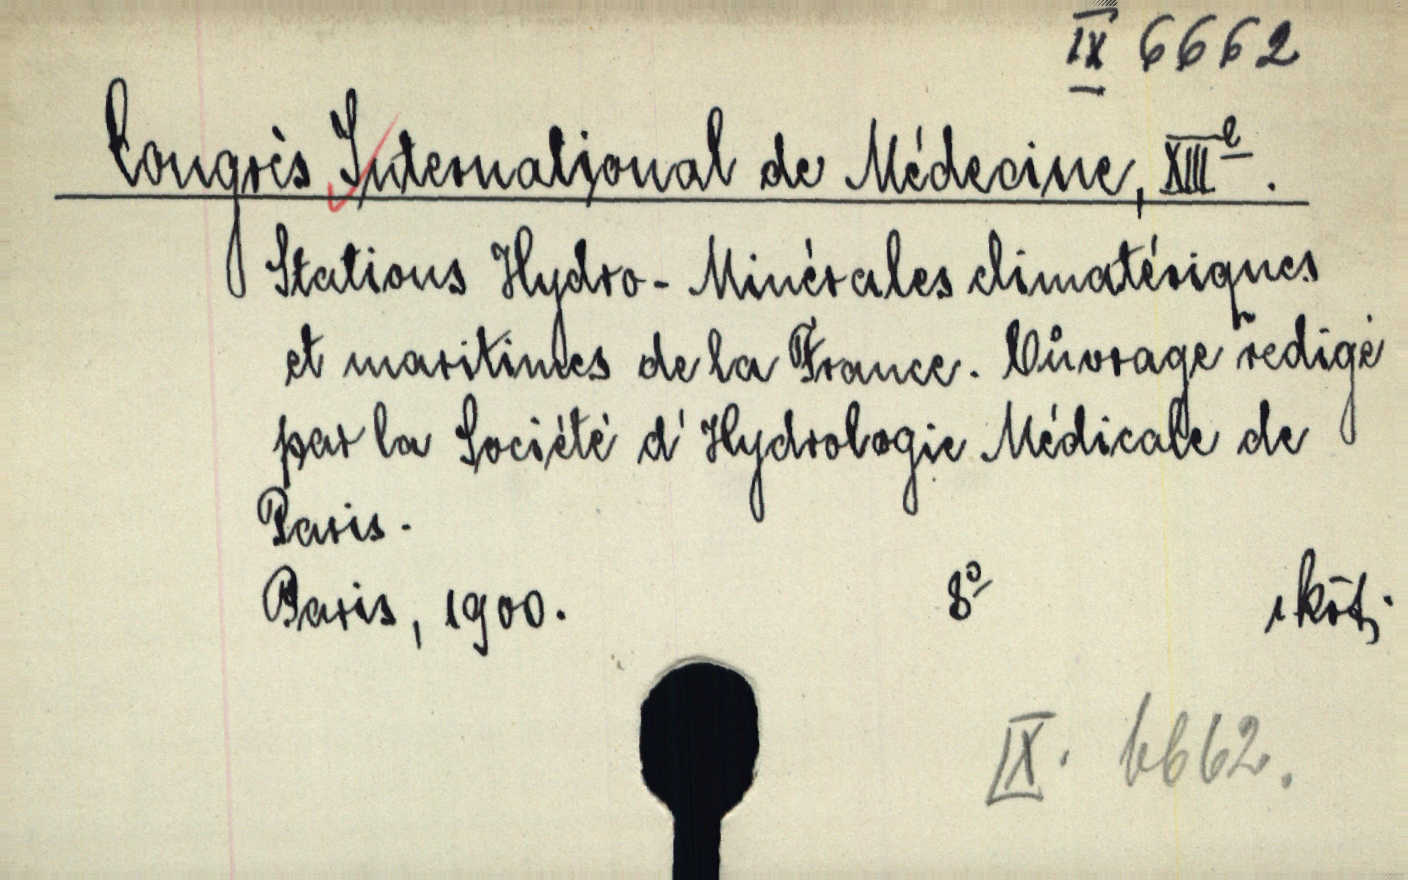 IX 6662
Congrès International de Médecine, XIIIe.
Stations Hydro-Minérales climatériques
et maritimes de la France. Ouvrage redigé
par la Société d'Hydrologie Médicale de
Paris.
Paris, 1900. 8o 1 köt.
IX. 6662.